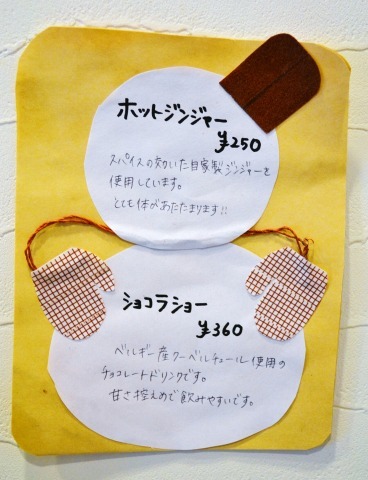 ホットジンジャー
¥250
スパイスの効いた自家製ジンジャーを
使用しています。
とても体があたたまります!!
ショコラショー
¥360
ベルギー産クーベルチュール使用の
チョコレートドリンクです。
甘さ控えめで飲みやすいです。